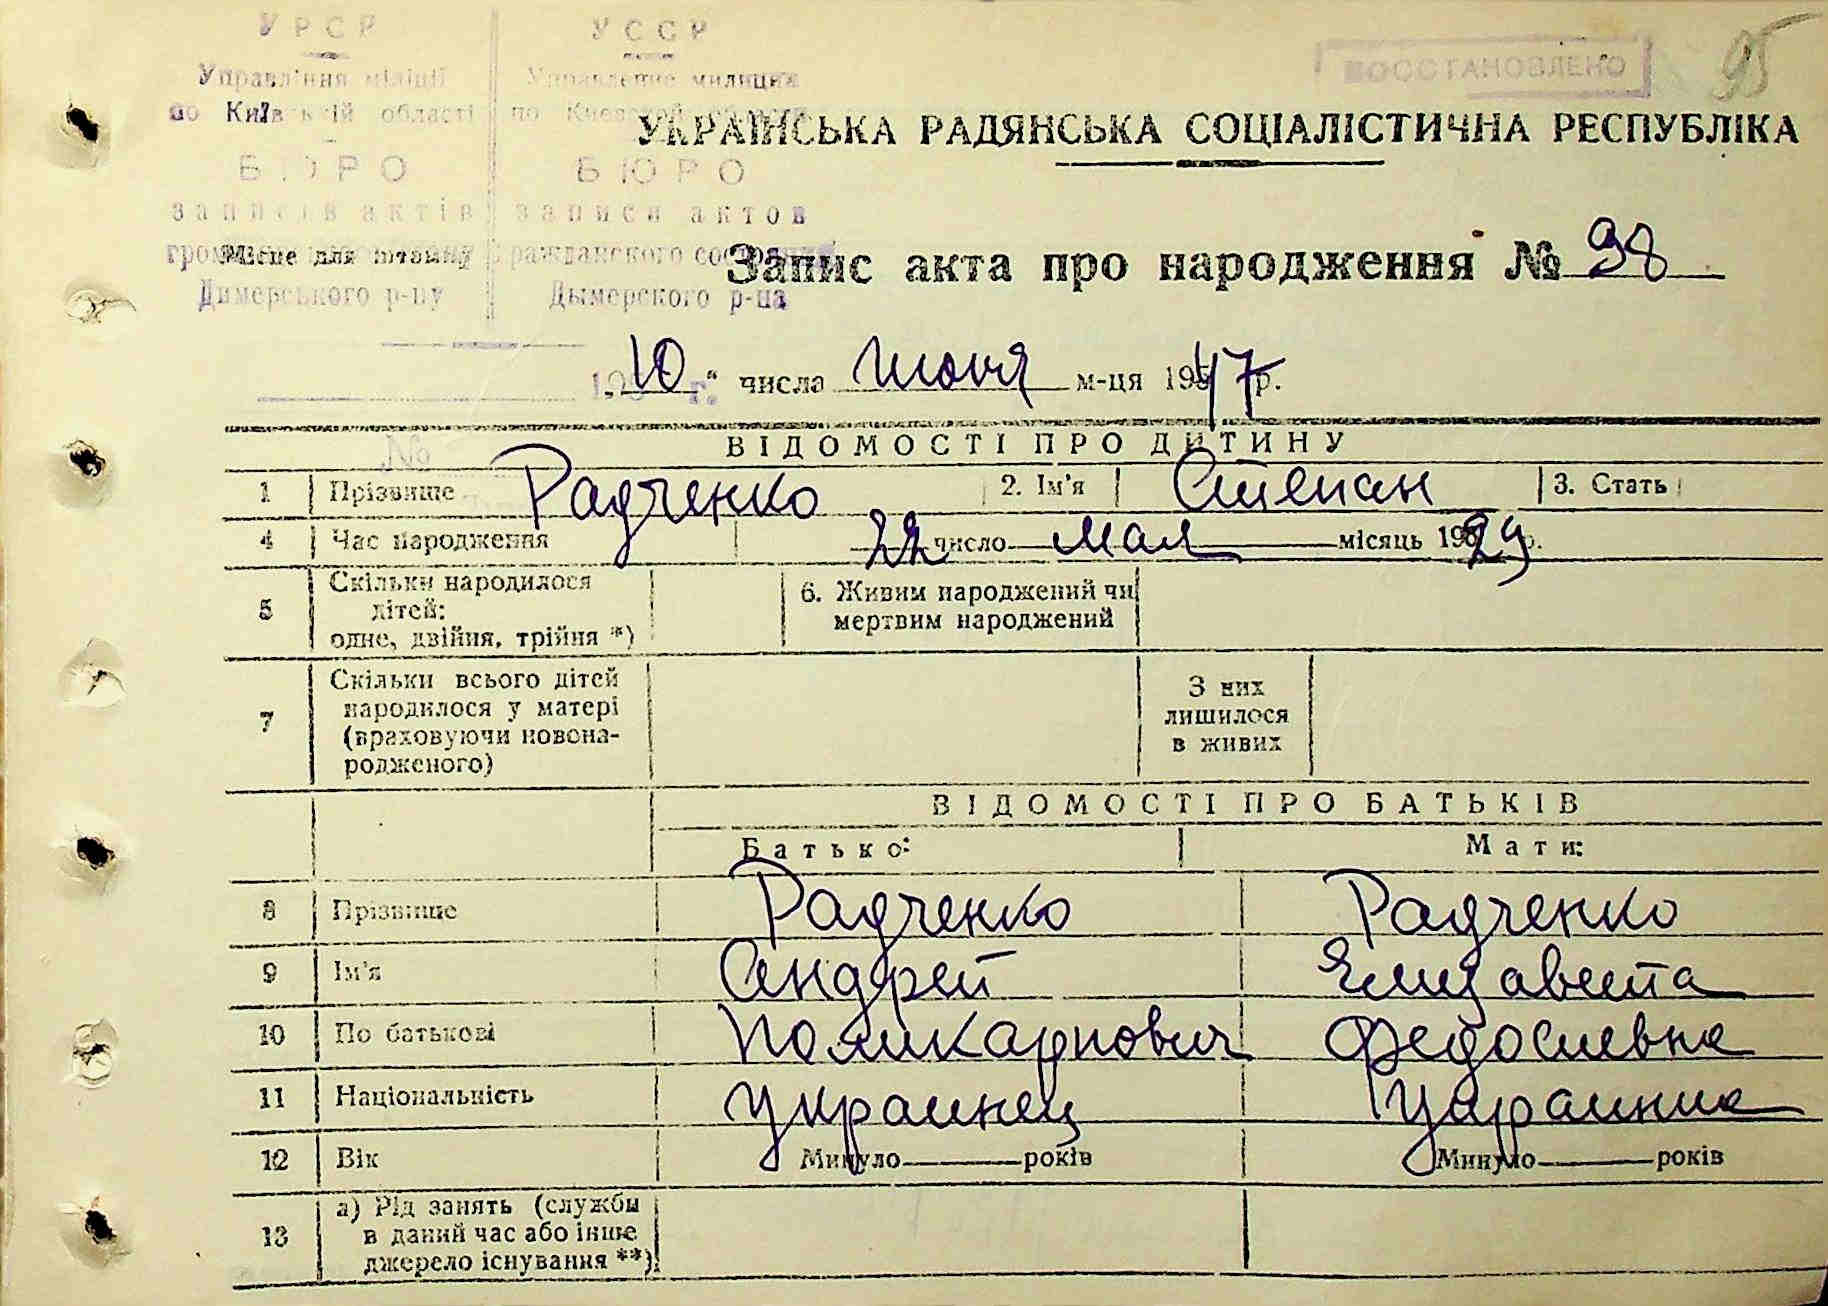 УРСР
Управління міліції
по Київській області
БЮРО
записів актів
громадянського стану
Димерського р-ну
УССР
Управление милиции
по Киевской области
БЮРО
записи актов
гражданского состояния
Дымерского р-на
Місце для штампу
№
ВОССТАНОВЛЕНО
95
УКРАЇНСЬКА РАДЯНСЬКА СОЦІАЛІСТИЧНА РЕСПУБЛІКА
Запис акта про народження № 98
„10“ числа Июня м-ця 1947 р.
ВІДОМОСТІ ПРО ДИТИНУ
1 Прізвище Радченко 2. Ім'я Степан 3. Стать
4 Час народження 22 число мая місяць 1929 р.
5 Скільки народилося дітей: одне, двійня, трійня *) 6. Живим народжений чи мертвим народжений
7 Скільки всього дітей народилося у матері (враховуючи новонародженого) З них лишилося в живих
ВІДОМОСТІ ПРО БАТЬКІВ
Батько: Мати:
8 Прізвище Радченко Радченко
9 Ім'я Андрей Елизавета
10 По батькові Поликарпович Федосиевна
11 Національність украинец Украинка
12 Вік Минуло років Минуло років
13 а) Рід занять (служби в даний час або інше джерело існування **)